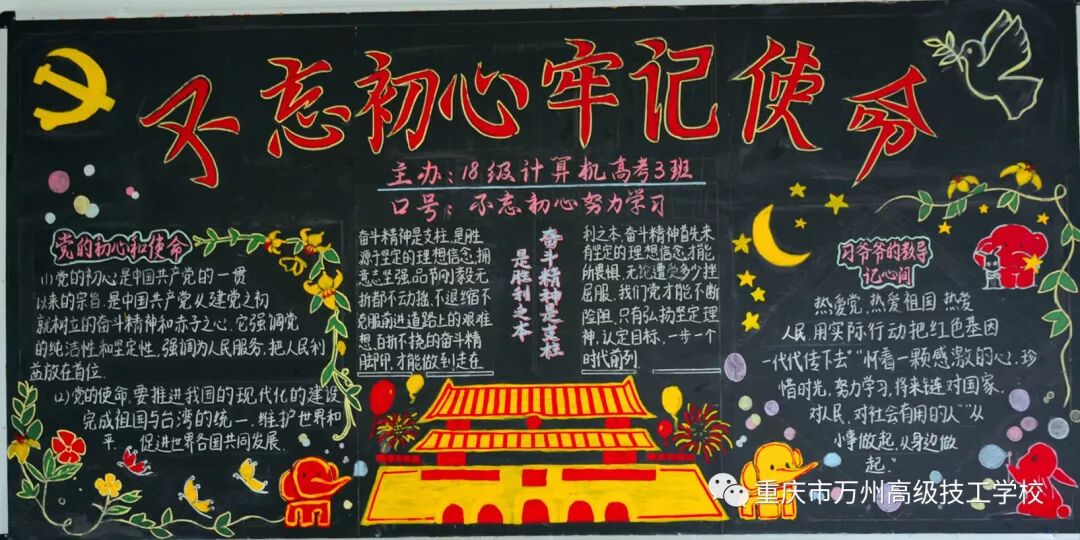 不忘初心牢记使命
主办:18级计算机高考3班
口号:不忘初心努力学习
党的初心和使命
(1)党的初心是中国共产党的一贯
以来的宗旨,是中国共产党从建党之初
就树立的奋斗精神和赤子之心,它强调党
的纯洁性和坚定性,强调为人民服务,把人民利
益放在首位.
(2)党的使命,要推进我国的现代化的建设
完成祖国与台湾的统一、维护世界和
平,促进世界各国共同发展.
奋斗精神是支柱,是胜
源于坚定的理想信念,拥
意志坚强,品节刚毅无
折都不动摇,不退缩不
克服前进道路上的艰难
想,百折不挠的奋斗精
脚印,才能做到走在
奋斗精神是支柱
是胜利之本
利之本,奋斗精神首先来
有坚定的理想信念才能
所畏惧,无论遭受多少挫
屈服,我们党才能不断
险阻,只有弘扬坚定理
神,认定目标,一步一个
时代前列.
习爷爷的教导
记心间
热爱党,热爱祖国,热爱
人民,用实际行动把红色基因
一代代传下去""怀着一颗感激的心,珍
惜时光,努力学习,将来 对国家.
对人民,对社会有用的人""从
小事做起,从身边做
起."
重庆市万州高级技工学校